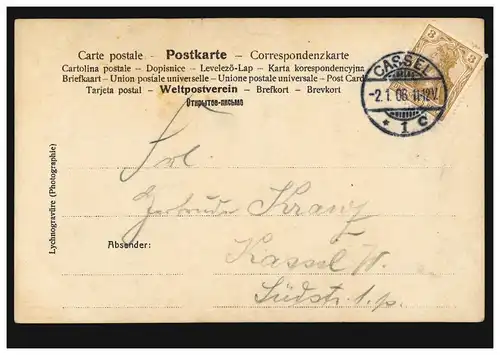 Carte postale – Postkarte – Correspondenzkarte
Cartolina postale – Dopisnice – Levelező-Lap – Karta korespondencyjna
Briefkaart – Union postale universelle – Unione postale universale – Post Card
Tarjeta postal – Weltpostverein – Brefkort – Brevkort
Открытое-письмо
3 3
CASSEL
-2.1.06.11-12V.
* 1 c
Frl.
Gertrude Kranz
Kassel W.
Südstr. 1. p.
Absender:
Lychnogravüre (Photographie)